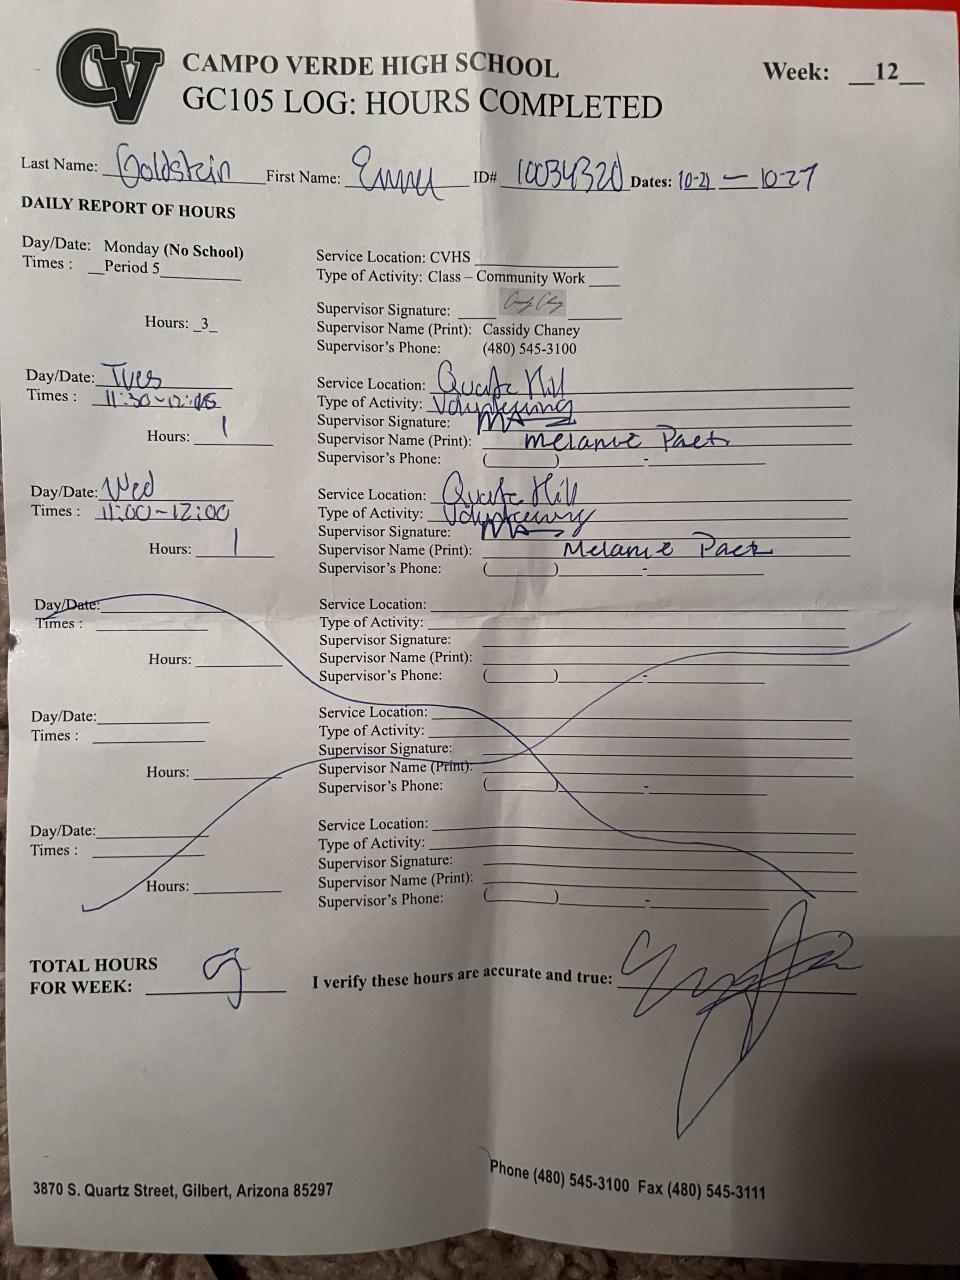 CV
CAMPO VERDE HIGH SCHOOL
Week: __12__
GC105 LOG: HOURS COMPLETED
Last Name: Goldstein First Name: Emma ID# 10034320 Dates: 10-21 — 10-27
DAILY REPORT OF HOURS
Day/Date: Monday (No School)
Times : __Period 5
Hours: _3_
Service Location: CVHS
Type of Activity: Class – Community Work
Supervisor Signature:
Supervisor Name (Print): Cassidy Chaney
Supervisor's Phone: (480) 545-3100
Day/Date: Tues
Times : 11:30-12:
Hours: 1
Service Location: Quartz Hill
Type of Activity: Volunteering
Supervisor Signature:
Supervisor Name (Print): Melanie
Supervisor's Phone: ( ) -
Day/Date: Wed
Times : 11:00-12:00
Hours: 1
Service Location: Quartz Hill
Type of Activity: Volunteering
Supervisor Signature:
Supervisor Name (Print): Melanie
Supervisor's Phone: ( ) -
Day/Date:
Times :
Hours:
Service Location:
Type of Activity:
Supervisor Signature:
Supervisor Name (Print):
Supervisor's Phone: ( ) -
Day/Date:
Times :
Hours:
Service Location:
Type of Activity:
Supervisor Signature:
Supervisor Name (Print):
Supervisor's Phone: ( ) -
Day/Date:
Times :
Hours:
Service Location:
Type of Activity:
Supervisor Signature:
Supervisor Name (Print):
Supervisor's Phone: ( ) -
TOTAL HOURS
FOR WEEK:
I verify these hours are accurate and true:
3870 S. Quartz Street, Gilbert, Arizona 85297
Phone (480) 545-3100 Fax (480) 545-3111